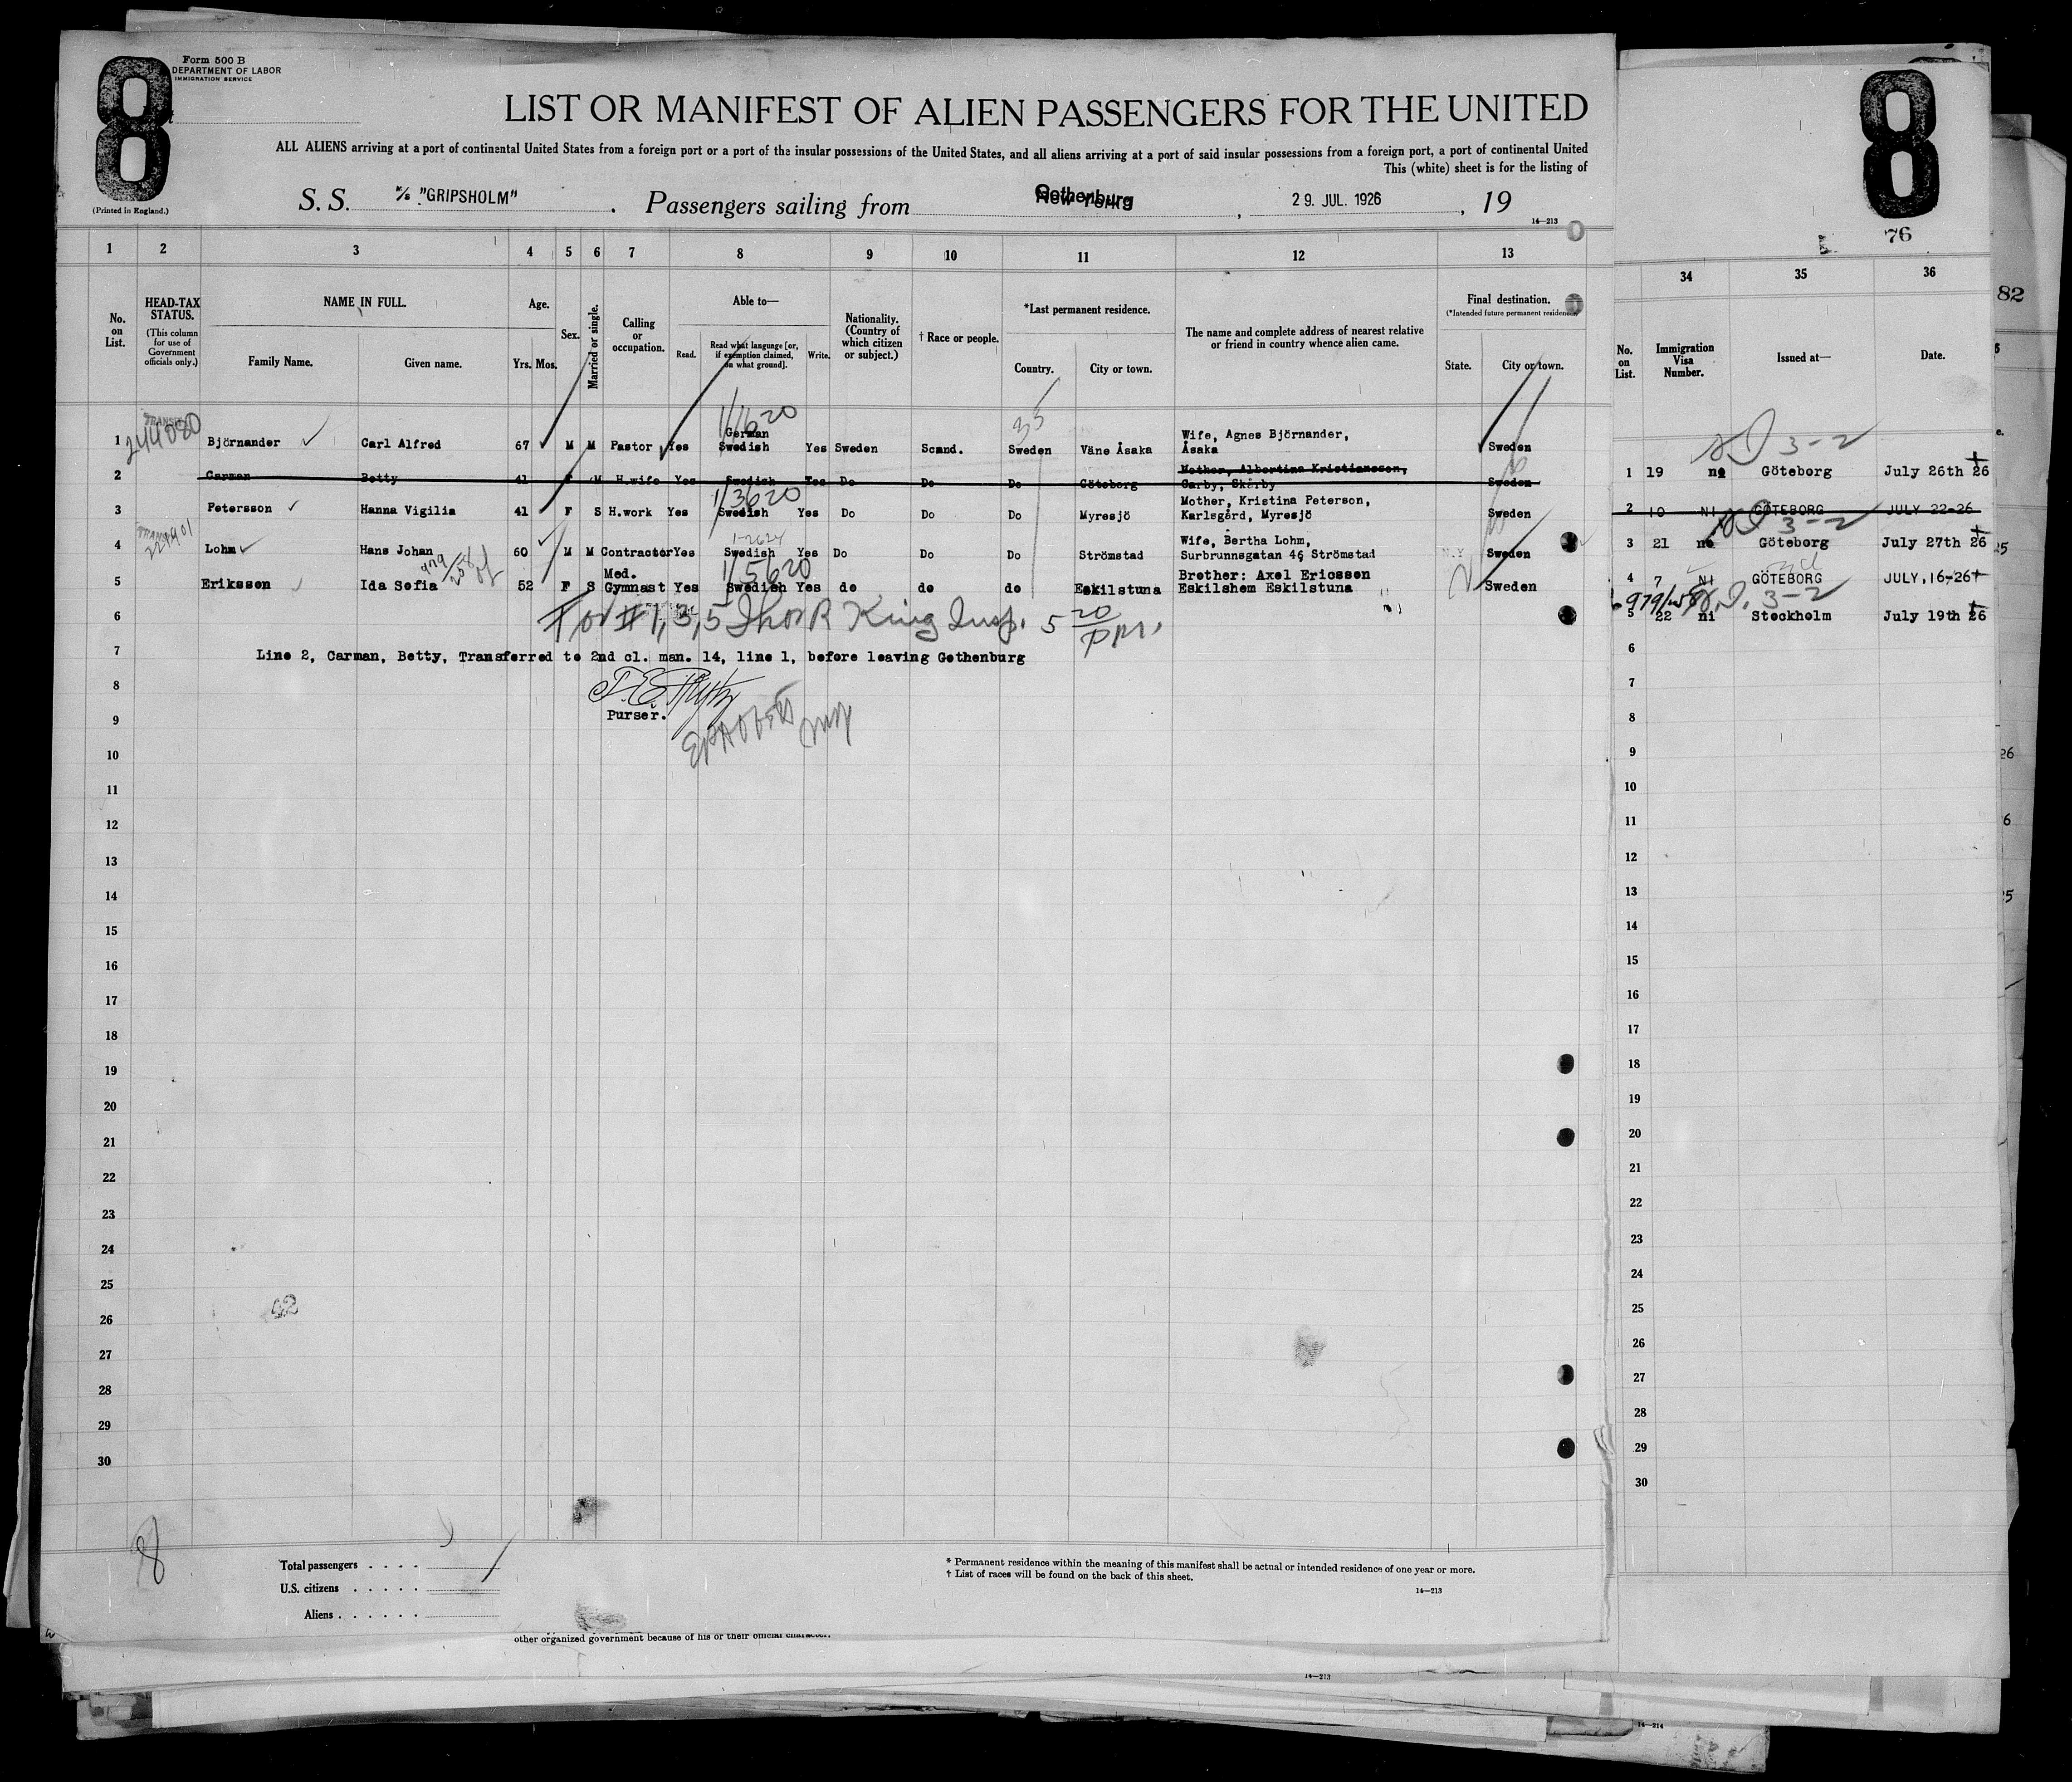 8
Form 500 B
DEPARTMENT OF LABOR
IMMIGRATION SERVICE
(Printed in England.)
LIST OR MANIFEST OF ALIEN PASSENGERS FOR THE UNITED
ALL ALIENS arriving at a port of continental United States from a foreign port or a port of the insular possessions of the United States, and all aliens arriving at a port of said insular possessions from a foreign port, a port of continental United
This (white) sheet is for the listing of
S. S. M/S "GRIPSHOLM" . Passengers sailing from Gothenburg , 29. JUL. 1926 , 19
14—213
1 2 3 4 5 6 7 8 9 10 11 12 13
No. on List.
HEAD-TAX STATUS.
(This column for use of Government officials only.)
NAME IN FULL.
Family Name. Given name.
Age.
Yrs. Mos.
Sex.
Married or single.
Calling or occupation.
Able to—
Read. Read what language [or, if exemption claimed, on what ground]. Write.
Nationality. (Country of which citizen or subject.)
† Race or people.
*Last permanent residence.
Country. City or town.
The name and complete address of nearest relative or friend in country whence alien came.
Final destination.
(*Intended future permanent residence.)
State. City or town.
TRANSIT
244080
1/1620
33
1 Björnander Carl Alfred 67 M M Pastor Yes German Swedish Yes Sweden Scand. Sweden Väne Åsaka Wife, Agnes Björnander, Åsaka Sweden
2 Carman Betty 41 F M H.wife Yes Swedish Yes Do Do Do Göteborg Mother, Albertina Kristiansson, Carby, Skärby Sweden
1/3620
3 Petersson Hanna Vigilia 41 F S H.work Yes Swedish Yes Do Do Do Myresjö Mother, Kristina Peterson, Karlsgård, Myresjö Sweden
4 Lohm Hans Johan 60 M M Contractor Yes Swedish Yes Do Do Do Strömstad Wife, Bertha Lohm, Surbrunnsgatan 46 Strömstad N.Y. Sweden
1/5620
5 Eriksson Ida Sofia 52 F S Med. Gymnast Yes Swedish Yes do do do Eskilstuna Brother: Axel Ericsson Eskilshem Eskilstuna Sweden
6 For #1, 3, 5 King Insp. 5 20/pm.
7 Line 2, Carman, Betty, Transferred to 2nd cl. man. 14, line 1, before leaving Gothenburg
8
Purser.
9
10
11
12
13
14
15
16
17
18
19
20
21
22
23
24
25
42
26
27
28
29
30
8
Total passengers . . . .
U.S. citizens . . . . .
Aliens . . . . . .
* Permanent residence within the meaning of this manifest shall be actual or intended residence of one year or more.
† List of races will be found on the back of this sheet.
14—213
other organized government because of his or their official character.
14—213
14—214
8
76
34 35 36
No. on List.
Immigration Visa Number.
Issued at—
Date.
3-2
1 19 Göteborg July 26th 26
2 10 NI GÖTEBORG JULY 22-26
3-2
3 21 Göteborg July 27th 26
4 7 NI GÖTEBORG JULY, 16-26
3-2
5 22 ni Stockholm July 19th 26
6
7
8
9
10
11
12
13
14
15
16
17
18
19
20
21
22
23
24
25
26
27
28
29
30
82